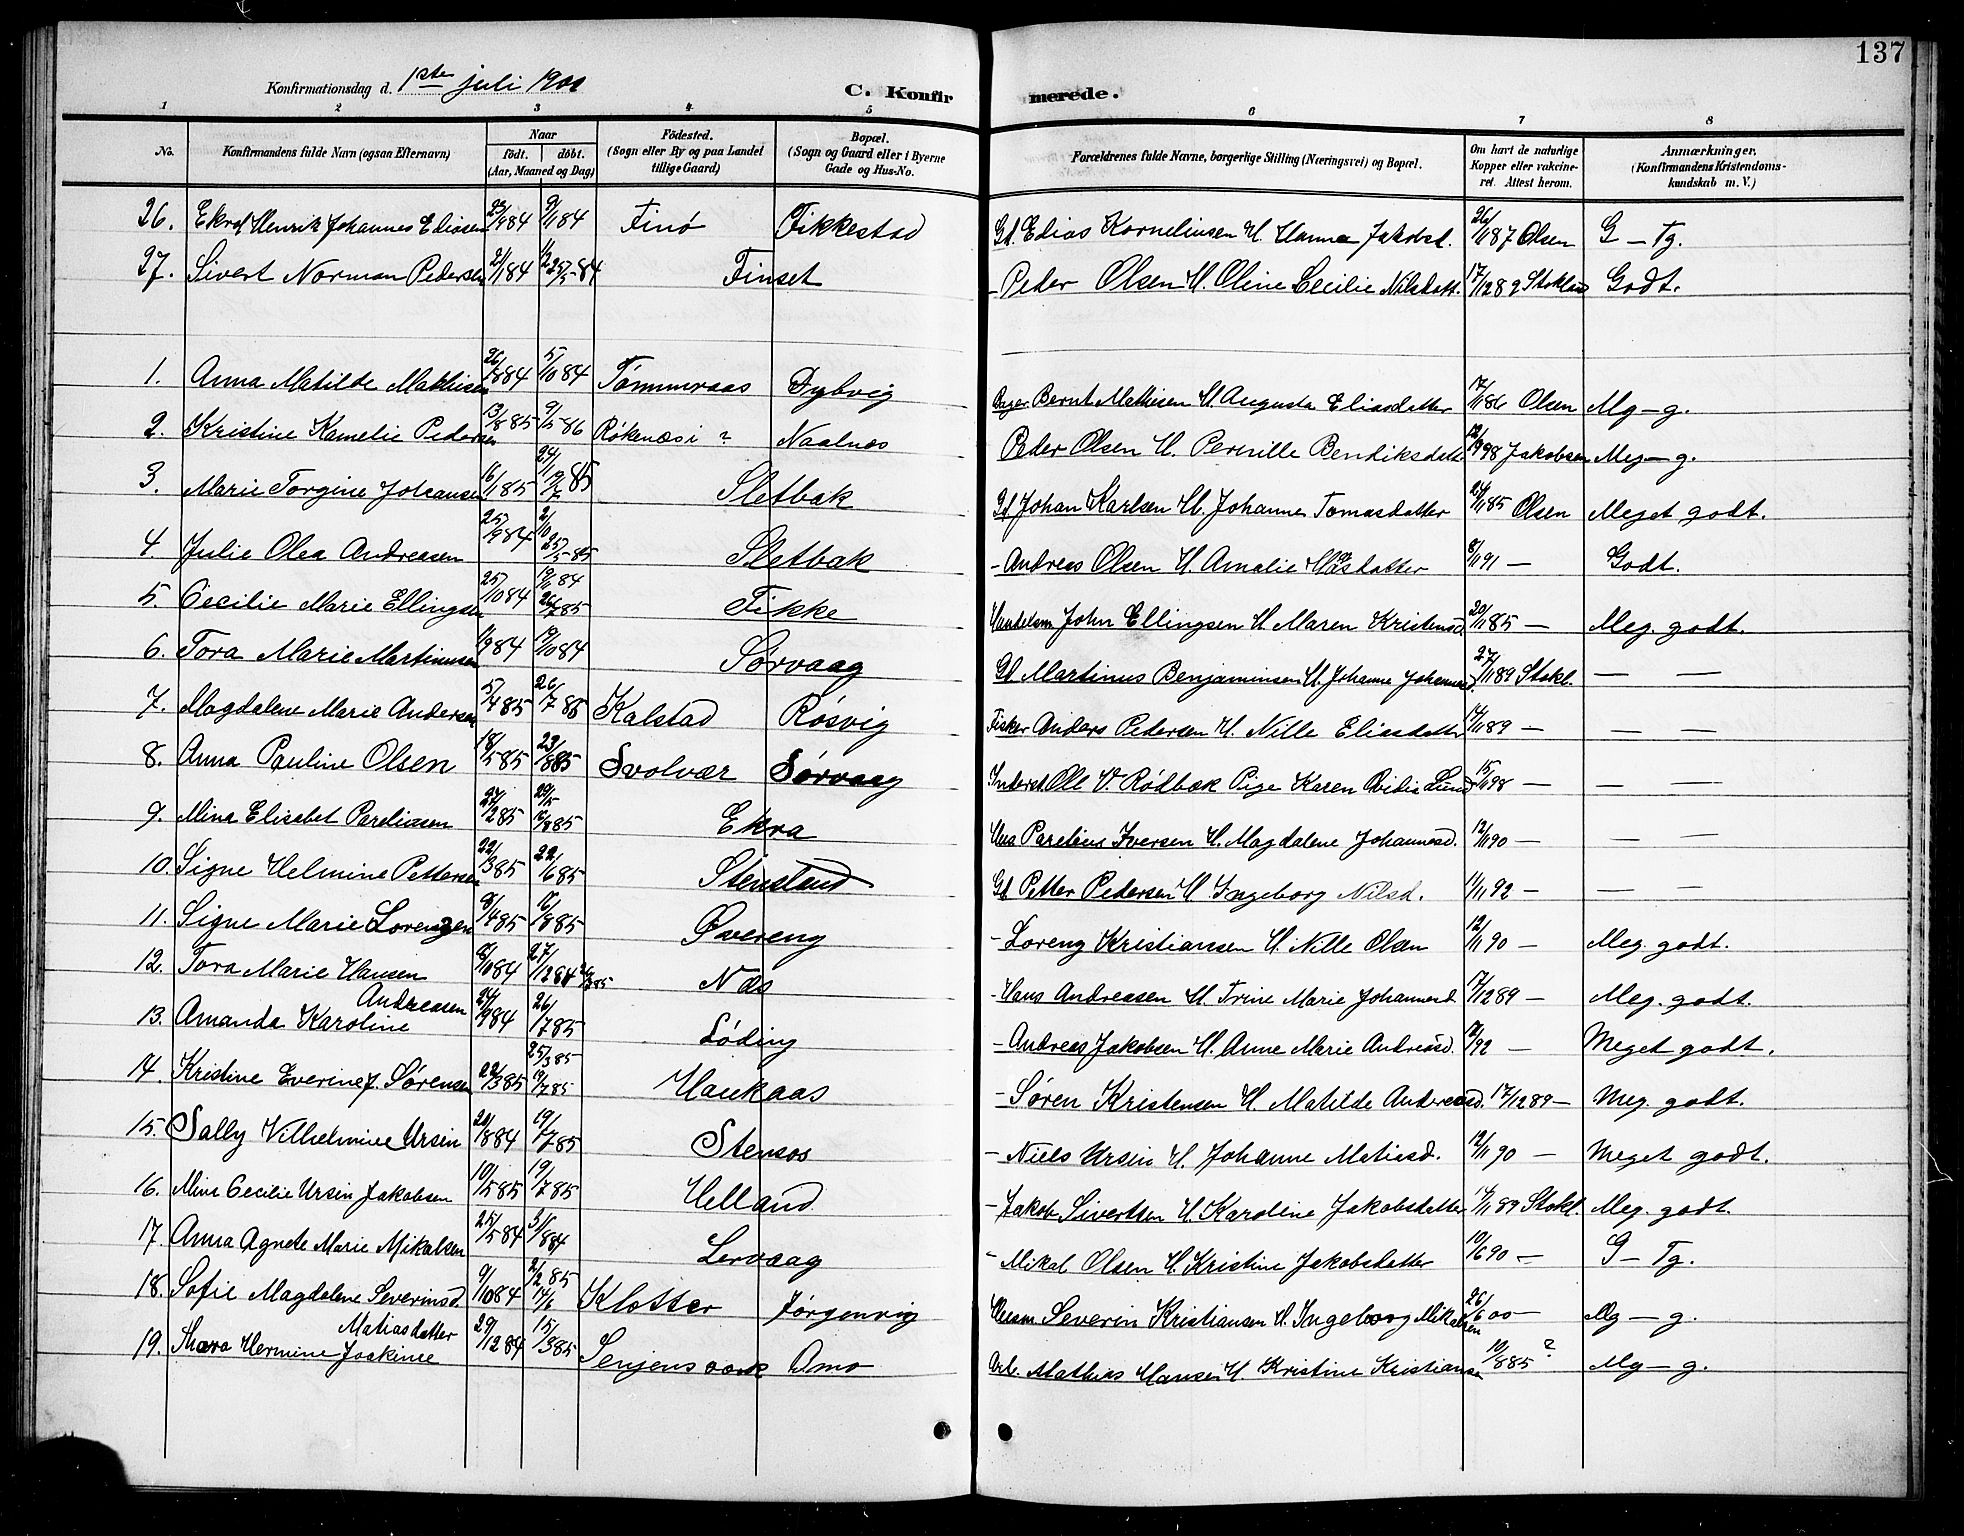 137
Konfirmationsdag d. 1ste juli 1900
C. Konfirmerede.
1 2 3 4 5 6 7 8
No. Konfirmandens fulde Navn (ogsaa Efternavn) Naar födt. döbt. (Aar, Maaned og Dag) Födested. (Sogn eller By og paa Landet tillige Gaard) Bopæl. (Sogn og Gaard eller i Byerne Gade og Hus-No. Forældrenes fulde Navne, borgerlige Stilling (Næringsvei) og Bopæl. Om havt de naturlige Kopper eller vakcineret. Attest herom. Anmærkninger. (Konfirmandens Kristendomskundskab m. V.)
26. Henrik Johannes Eliasen 84 9/11 84 Finø Fikkestad Gd. Edias Korneliusen H. Hanna Jakobsd. 26/11 87 Olsen G - Tg.
27. Sivert Norman Pedersen 2/1 84 25/5 84 Finset - Peder Olsen H. Oline Cecilie Nilsdatt. 17/12 89 Godt.
1. Anna Matilde Mathisen 26/7 84 5/10 84 Tømmeraas Dybvig Bernt Mathisen H. Augusta Eliasdatter 17/11 86 Olsen Mg - g.
2. Kristine Kamelie Pedersen 13/8 85 9/5 86 Røkenæs i ? Naalnes Peder Olsen H. Pernille Bendiksdatt. 12/9 98 Jakobsen Meg - g.
3. Marie Torgine Johansen 16/1 85 85 Sletbak Gd Johan Karlsen H. Johanne Tomasdatter 24/11 85 Olsen Meget godt.
4 Julie Olea Andreasen 25/9 84 2/10 25/5 85 Sletbak - Andreas Olsen H. Amalie 8/11 91 - Godt.
5. Cecilie Marie Ellingsen 25/10 84 84 26/7 85 Fikke Handelsm John Ellingsen H Maren Kristensd 20/11 85 - Meg. godt.
6. Tora Marie Martinusen 84 19/10 84 Sørvaag Gd Martinus Benjaminsen H. Johanne Johannesd. 27/11 89 Stokl. - -
7. Magdalene Marie Andersen 5/4 85 26/7 85 Kalstad Røsvig Fisker Anders Pedersen H. Nille Eliasdatter 14/11 89 - - -
8. Anna Pauline Olsen 18/5 85 23/8 85 Svolvær Sørvaag Inderst Ole V. Rødbak Pige Karen Lund 15/11 98 - - -
9. Mina Elisabet Pareliusen 27/2 85 85 Ekra Hus Parelius Iversen H. Magdalene Johannesd. 12/11 90 - - -
10. Signe Helmine Pettersen 22/3 85 22/6 85 Stensland Gd Petter Pedersen H Ingeborg Nilsd. 11/11 92 - - -
11. Signe Marie Lorenzen 8/4 85 16/8 85 Øvereng - Loreng Kristiansen H. Nille Olsen 12/11 90 - Meg. godt.
12. Tora Marie Hansen 8/10 84 27/12 84 Næs - Hans Andreasen H Trine Marie Johannesd. 17/12 89 - Meg. godt.
13. Amanda Karoline Andreasen 24/9 84 26/7 85 Løding - Andreas Jakobsen H. Anne Marie Andreasd. 92 - Meget godt.
14. Kristine Everine J. Sørensen 22/3 85 25/3 85 19/7 85 Haukaas - Søren Kristensen H Matilde Andereasd. 17/12 89 - Meg. godt.
15. Sally Vilhelmine Ursin 20/8 84 19/7 85 Stensos - Niels Ursin H. Johanne Matiasd. 12/11 90 - Meget godt.
16. Mina Cecilie Ursin Jakobsen 10/5 85 19/7 85 Helland - Jakob Sivertsen H. Karoline Jakobsdatter 14/11 89 Stokl. Meg. godt.
17. Anna Agnete Marie Mikalsen 25/5 84 31/8 84 Lervaag - Mikal Olsen H. Kristine Jakobsdatter 10/6 90 - G - Tg.
18. Sofie Magdalene Severinsd. 9/10 84 2/2 85 14/6 Klotter Jørgenvig Severin Kristiansen H. Ingeborg Mikalsen 26/6 00 - Mg - g.
19. Thora Hermine Joakime Matiasdatter 29/12 84 15/3 85 Omo Arb. Mathias Hansen H. Kristine Kristiansen 10/8 85 ? Mg - g.